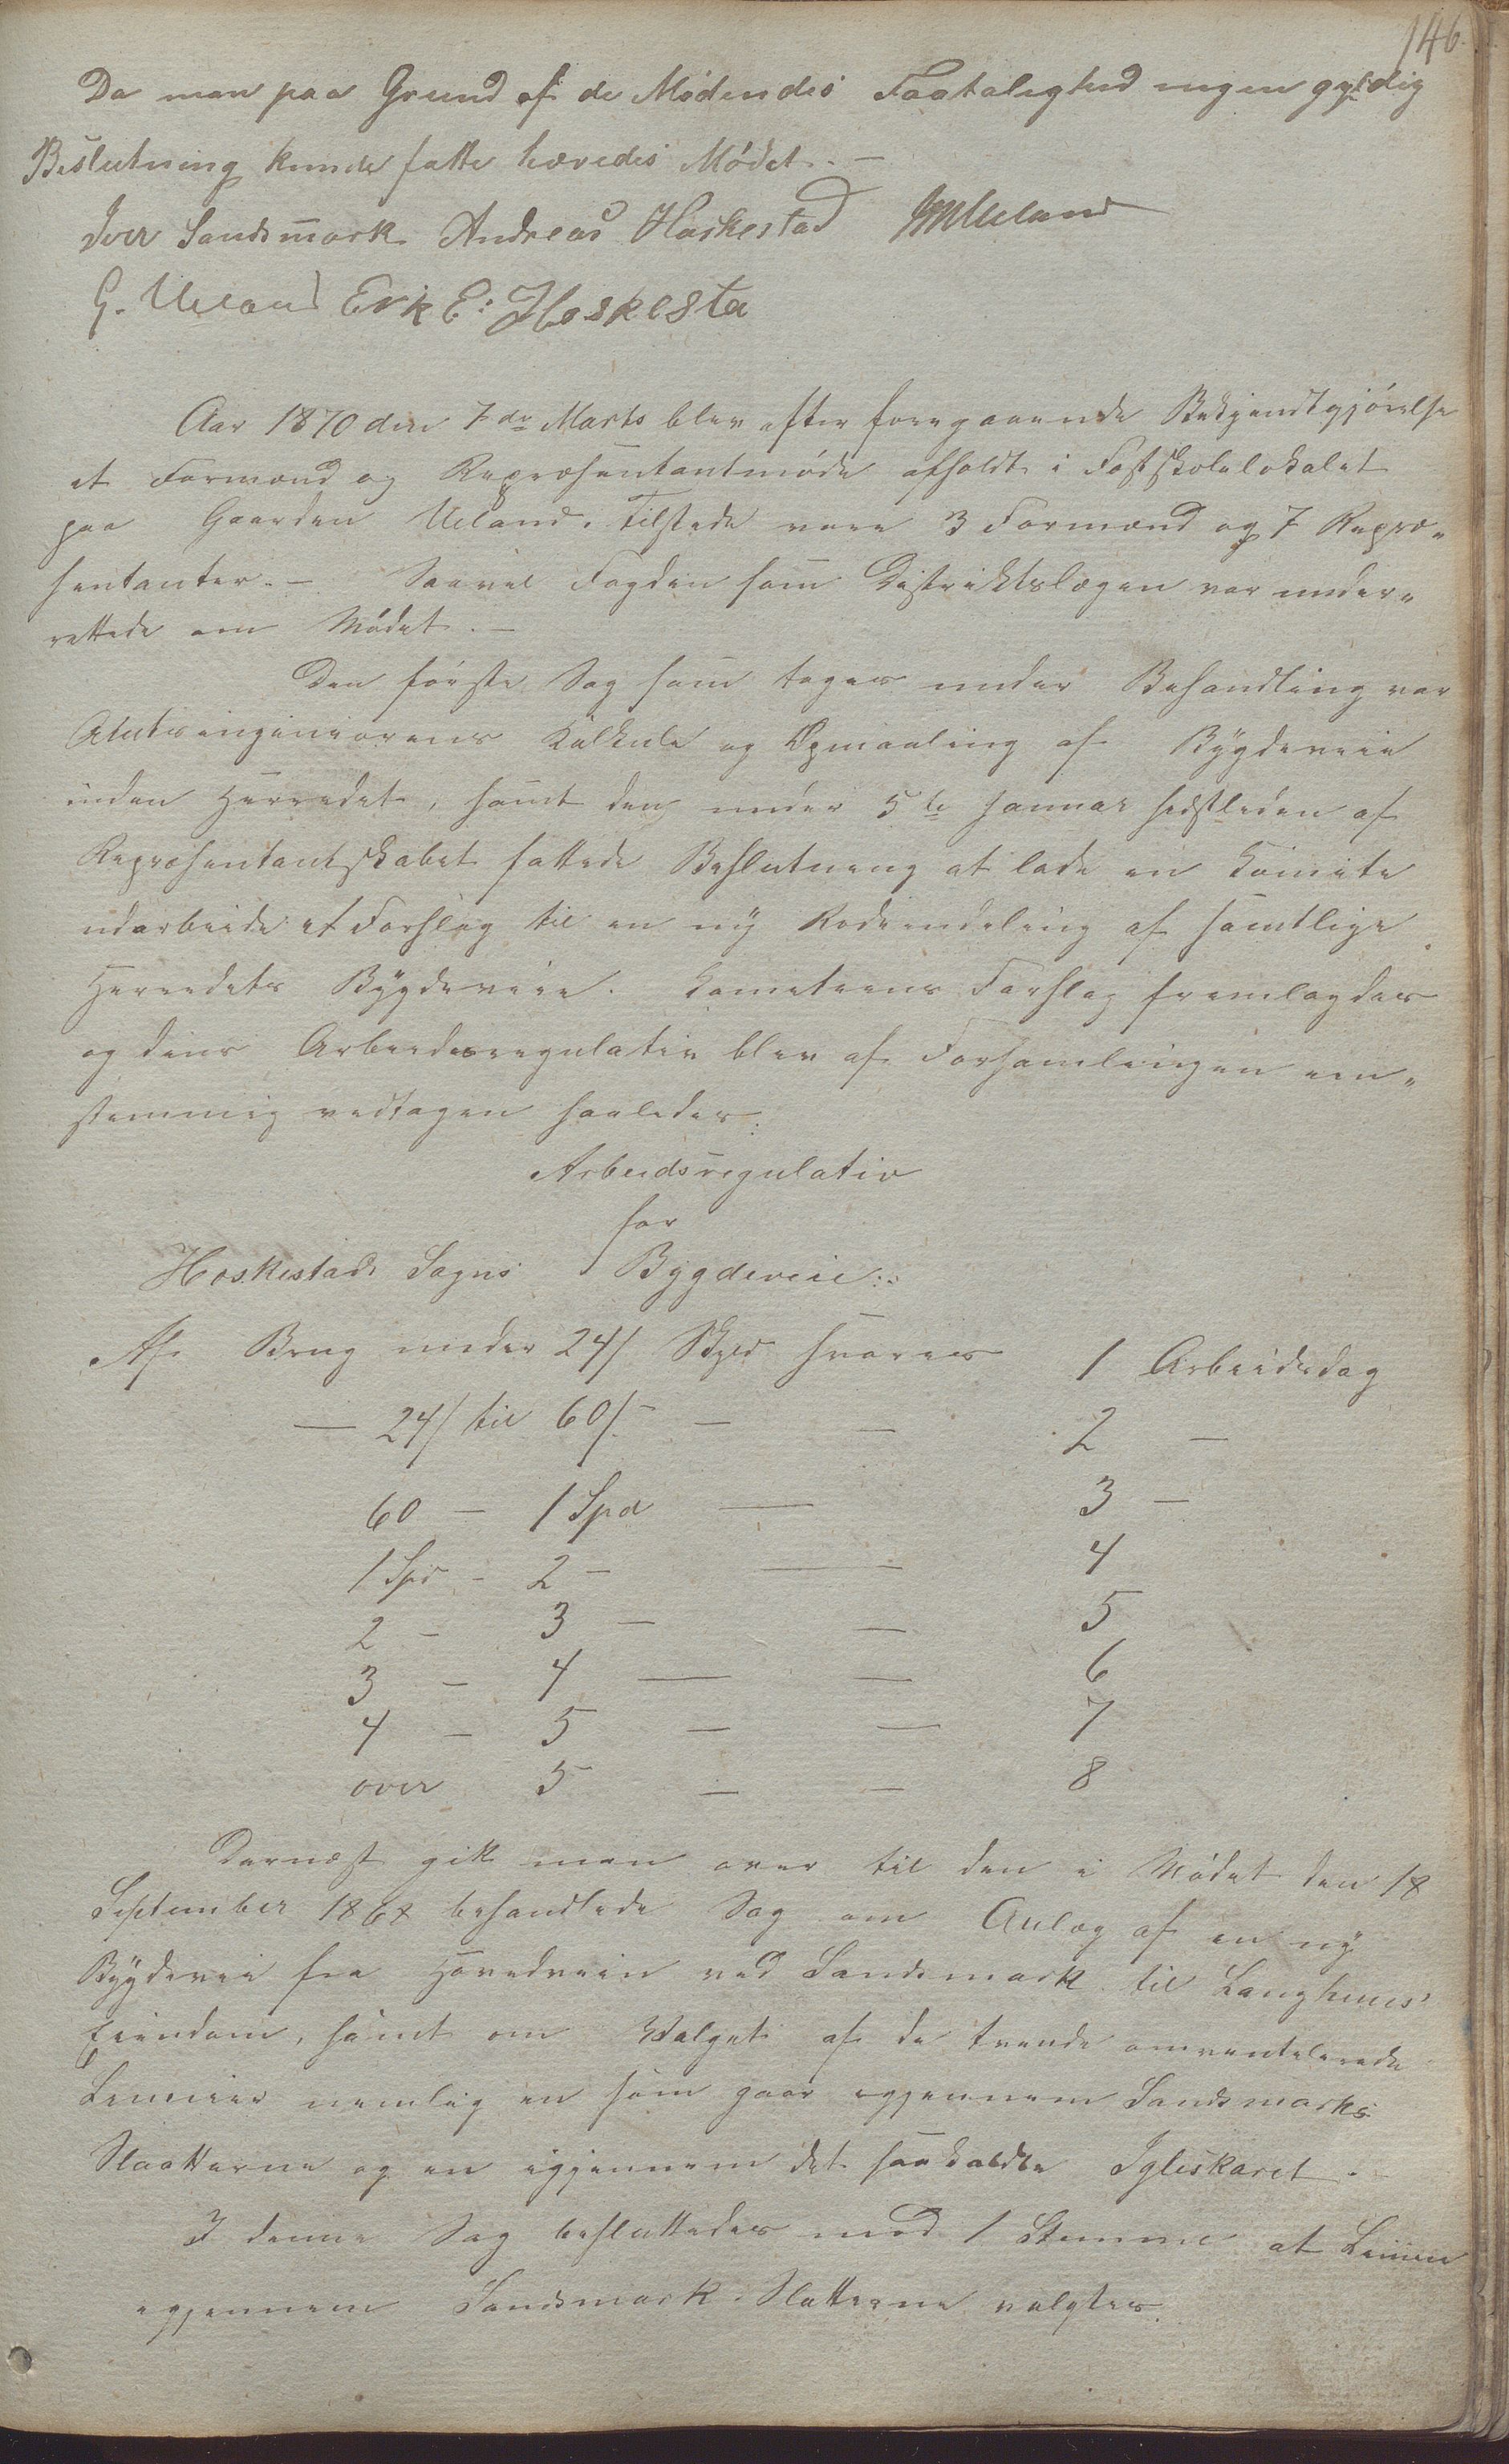 146.
Da man paa Grund af de Mødendes Faatalighed ingen gyldig
Beslutning kunde fatte hævedes Mødet. —
Iver Sandsmark Andreas Haskestad JMUeland
G. Ueland Erk E: Hoskesta
Aar 1870 den 7de Marts blev efter foregaaende Bekjendtgjørelse
et Formand og Repræsentantmøde afholdt i Fastskolelokalet
paa Gaarden Ueland. Tilstede vare 3 Formænd og 7 Repræ„
sentanter. — Saavel Fogden som Distriktslægen var under„
rettede om Mødet. —
Den første Sag som toges under Behandling var
Amtsingeniørens Kalkule og Opmaaling af Bygdeveie
inden Herredet, samt den under 5te Januar sidstleden af
Repræsentantskabet fattede Beslutning at lade en Komite
udarbeide et Forslag til en ny Rodeindeling af samtlige
Herredets Bygdeveie. Komiteens Forslag fremlagdes
og dens Arbeidsregulativ blev af Forsamlingen een„
stemmig vedtagen saaledes:
Arbeidsregulativ
for
Heskestads Sogns Bygdeveie:
Af Brug under 24/ Skyld svares 1 Arbeidsdag
— 24/ til 60/ — — 2 —
60 — 1 Spd — 3 —
1 Spd - 2 — — — 4
2 - 3 — — 5
3 - 4 — — 6
4 - 5 — — 7
over 5 — — 8
Dernæst gik man over til den i Mødet den 18
September 1868 behandlede Sag om Anlæg af en ny
Bygdevei fra Hovedveien ved Sandsmark til Langhuus'
Eiendom, samt om Valget af de tvende omventilerede
Linnier nemlig en som gaar igjennem Sandsmarks
Slaatterne og en igjennem det saakaldte Igleskaret.
I denne Sag besluttedes mod 1 Stemme at Linien
igjennem Sandsmark Slatterne valgtes.